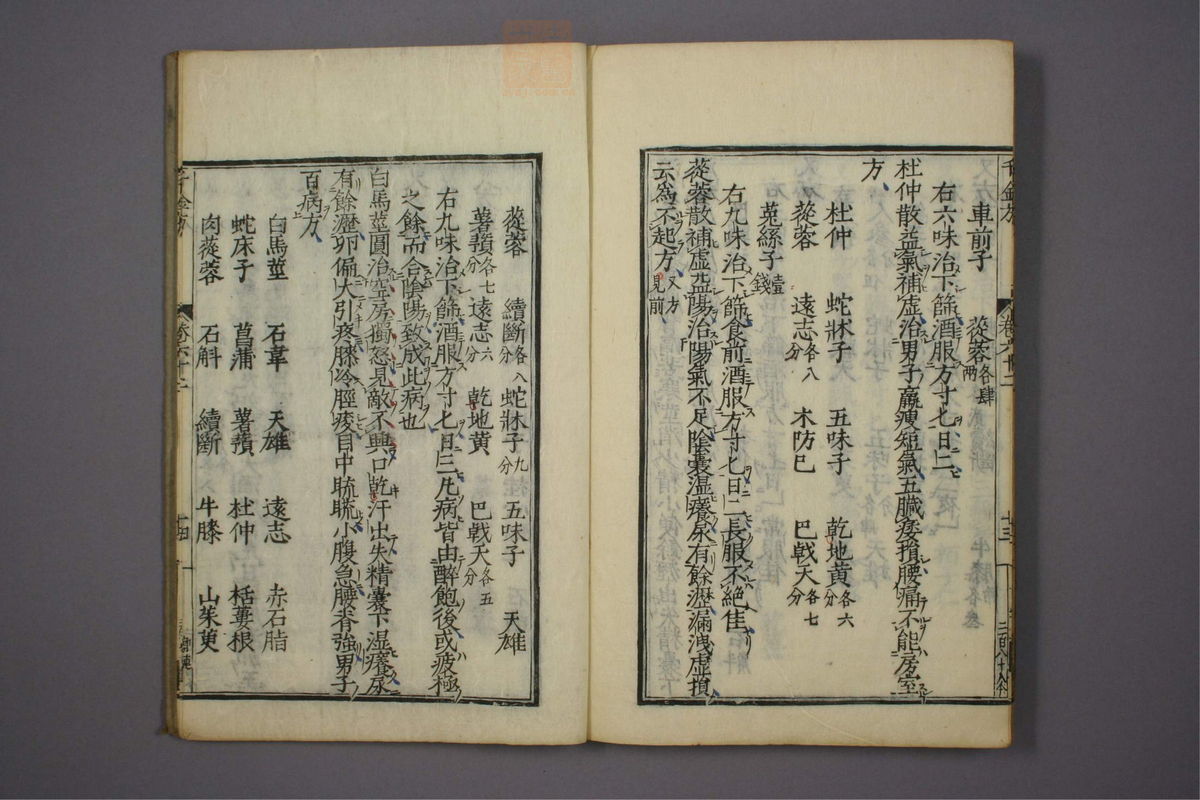 車前子 蓯蓉各肆兩
右六味治下篩酒服方寸匕日二
杜仲散益氣補虛治男子羸瘦短氣五臟痿損腰痛不能房室
方
杜仲 蛇牀子 五味子 乾地黃各六分
蓯蓉 遠志各八分 木防巳 巴戟天各七分
菟絲子壹錢
右九味治下篩食前酒服方寸匕日二長服不絕佳
蓯蓉散補虛益陽治陽氣不足陰囊濕癢尿有餘瀝漏洩虛損
云為不起方又方見前
蓯蓉 續斷各八分 蛇牀子九分 五味子 天雄
薯蕷各七分 遠志六分 乾地黃 巴戟天各五分
右九味治下篩酒服方寸匕日三凡病皆由醉飽後或疲極
之餘而合陰陽致成此病也
白馬莖圓治空房獨怒見敵不興口乾汗出失精囊下濕癢尿
有餘瀝卵偏大引疼膝冷脛痠目中䀮䀮小腹急腰脊強男子
百病方
白馬莖 石韋 天雄 遠志 赤石脂
蛇床子 菖蒲 薯蕷 杜仲 栝蔞根
肉蓯蓉 石斛 續斷 牛膝 山茱萸